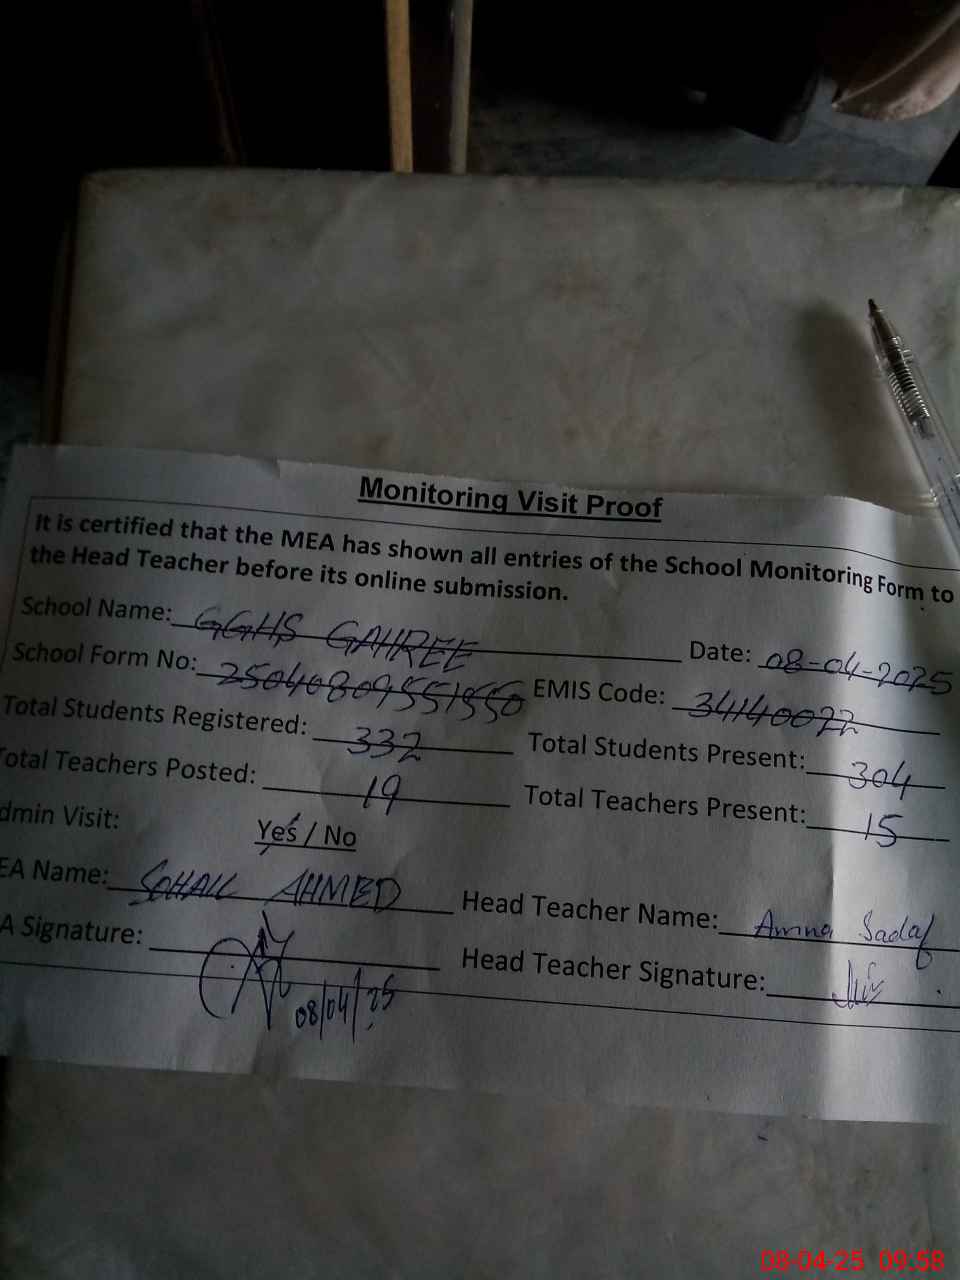 Monitoring Visit Proof
It is certified that the MEA has shown all entries of the School Monitoring Form to
the Head Teacher before its online submission.
School Name: GGHS GAHREE Date: 08-04-2025
School Form No: 25040809551550 EMIS Code: 34140022
Total Students Registered: 332 Total Students Present: 304
Total Teachers Posted: 19 Total Teachers Present: 15
dmin Visit: Yes / No
EA Name: SOHAIL AHMED Head Teacher Name: Amna Sadaf
A Signature: Head Teacher Signature:
08/04/25
08-04-25 09:58